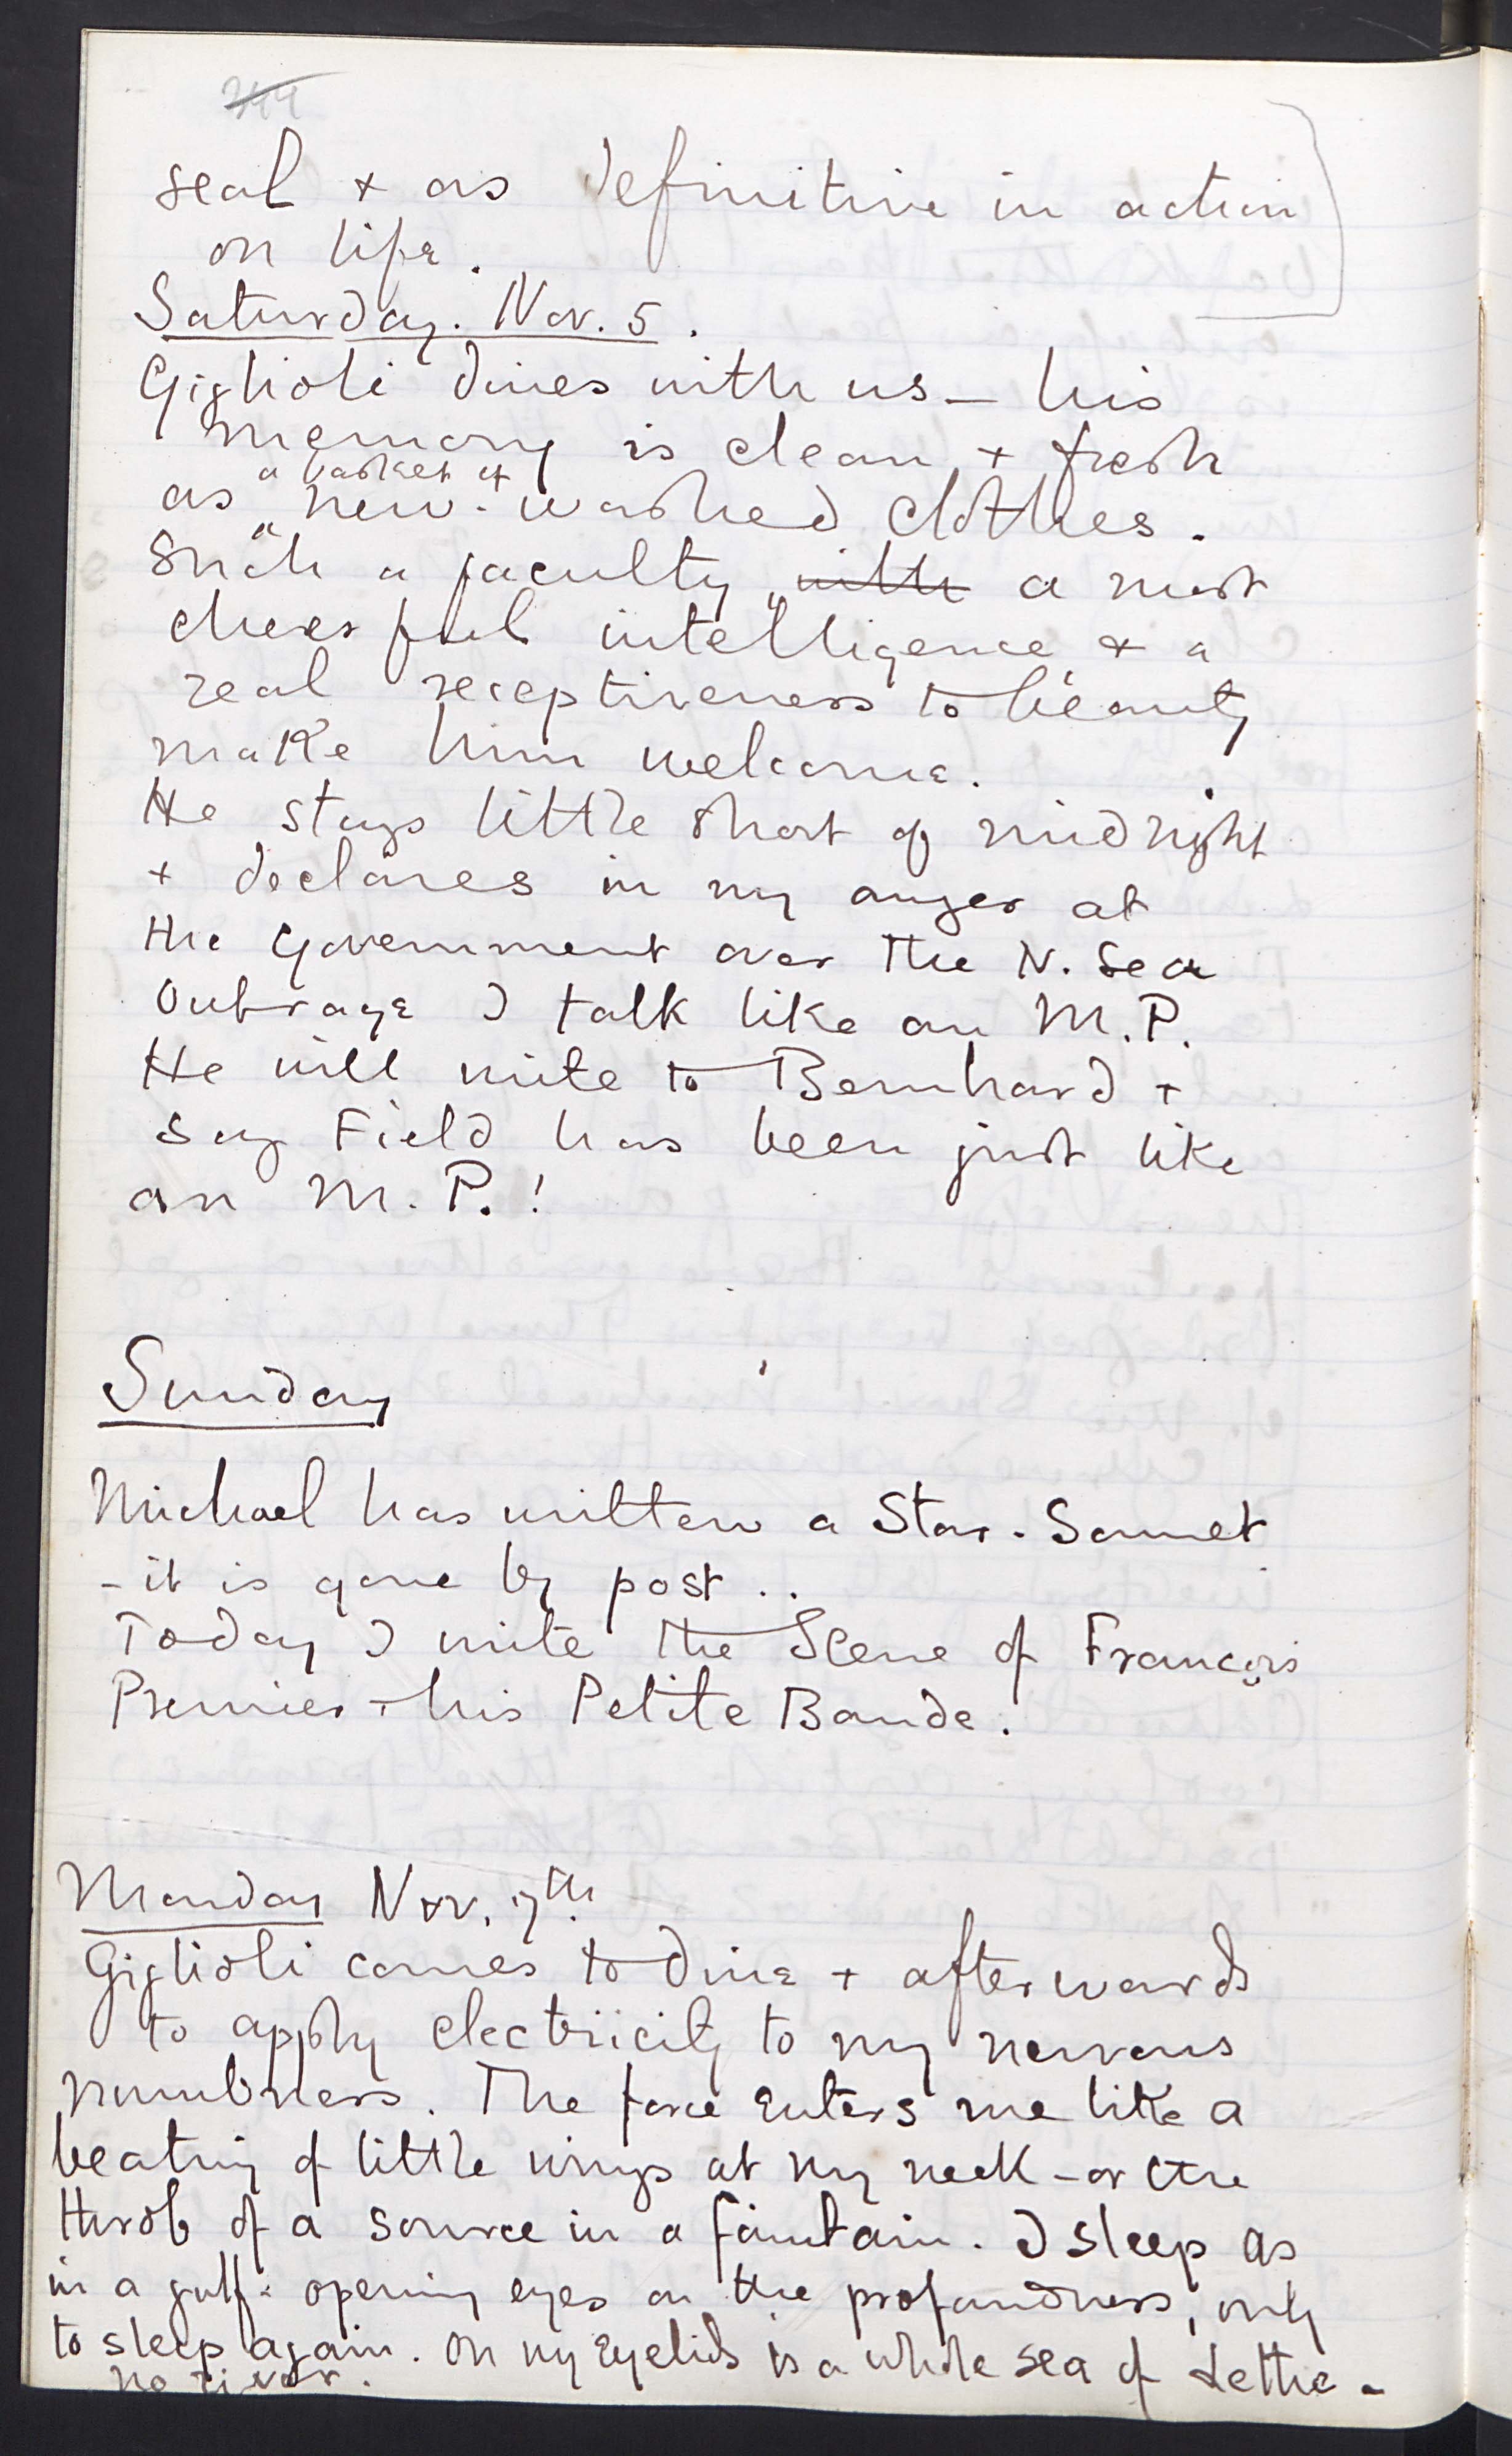 244
seal + as definitive in action
on life.
Saturday. Nov. 5.
Giglioli dines with us – his
memory is clean + fresh
as a basket of new-washed clothes.
Such a faculty, with a most
cheerful intelligence + a
real receptiveness to beauty
make him welcome.
He stays little short of midnight
+ declares in my anger at
the Government over the N. Sea
Outrage I talk like an M.P.
He will write to Bernhard +
say Field has been just like
an M.P.!
Sunday
Michael has written a Star-Sonnet
- it is gone by post..
Today I write the Scene of François
Premier + his Petite Bande.
Monday Nov. 7th.
Giglioli comes to dine + afterwards
to apply electricity to my nervous
numbness. The force enters me like a
beating of little wings at my neck – or the
throb of a source in a fountain. I sleep as
in a gulf - opening eyes on the profoundness, only
to sleep again. On my Eyelids is a whole sea of Lethe -
no river.